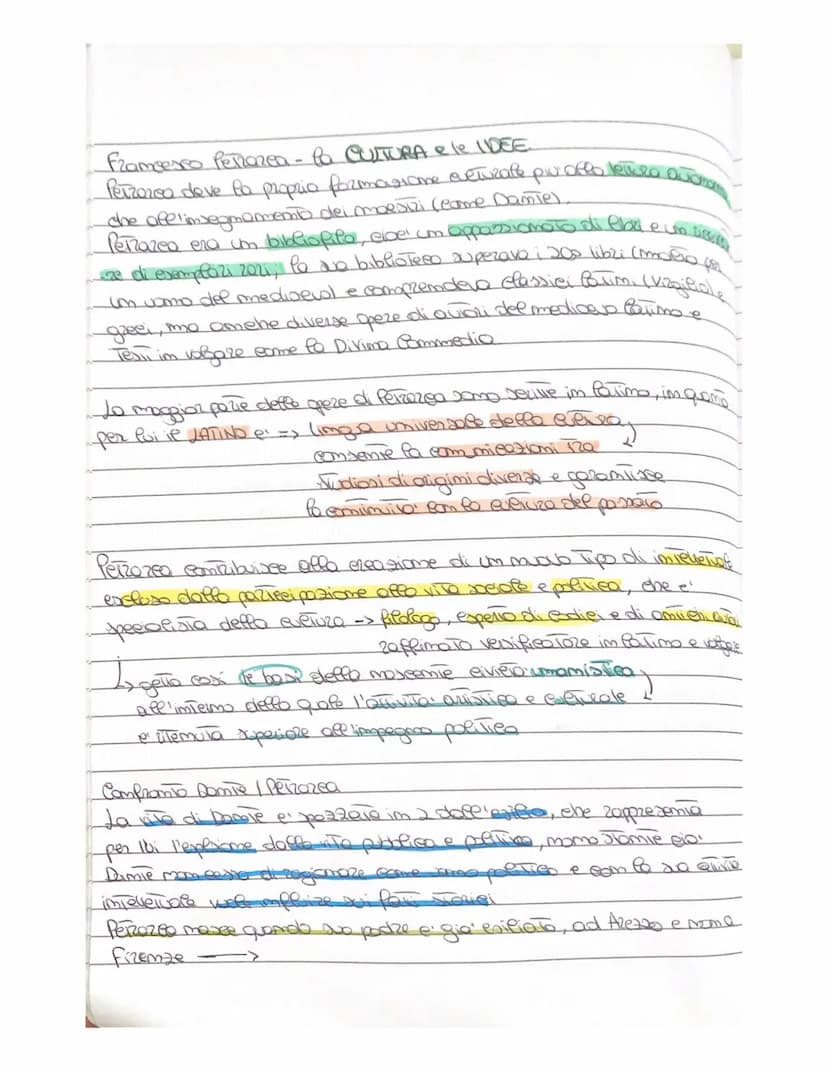 Francesco Petrarca - la CULTURA e le IDEE
Petrarca deve la propria formazione culturale più alla lettura autonoma
che all'insegnamento dei maestri (come Dante).
Petrarca era un bibliofilo, cioè un appassionato di libri e un
di esemplari rari, la sua biblioteca superava i 200 libri (molto per
un uomo del medioevo) e comprendeva classici latini (Virgilio) e
greci, ma anche diverse opere di autori del medioevo latino e
testi in volgare come la Divina Commedia
La maggior parte delle opere di Petrarca sono scritte in latino, in quanto
per lui il LATINO e' => lingua universale della cultura,
consente la comunicazioni tra
studiosi di origini diverse e garantisce
la continuità con la cultura del passato
Petrarca contribuisce alla creazione di un nuovo tipo di intellettuale
escluso dalla partecipazione alla vita sociale e politica, che e'
specialista della cultura -> filologo, esperto di codici e di
raffinato versificatore in latino e volgare
↳ getta così le basi della nascente civiltà umanistica,
all'interno della quale l'attività artistica e culturale
e' ritenuta superiore all'impegno politico
Confronto Dante | Petrarca
La vita di Dante e' spezzata in 2 dall'esilio, che rappresenta
per lui l'esplusione dalla vita pubblica e politica, nonostante ciò
Dante non cessa di ragionare come uomo politico e con la sua attività
intellettuale vuole influire sui fatti storici
Petrarca nasce quando suo padre e' già esiliato, ad Arezzo e non a
Firenze ->